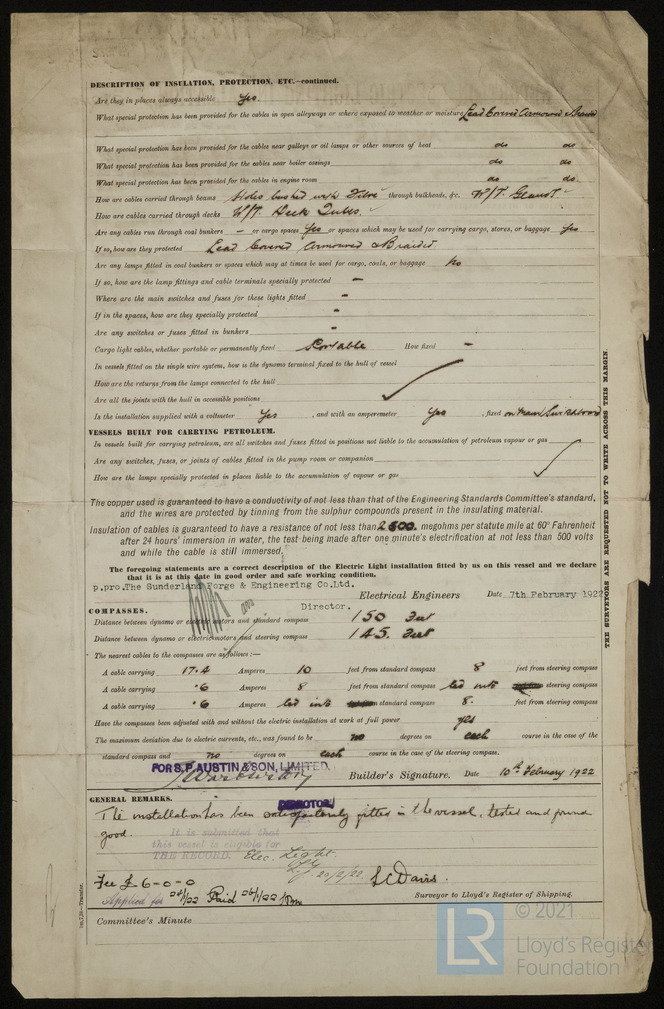 DESCRIPTION OF INSULATION, PROTECTION, ETC.—continued.
Are they in places always accessible Yes.
What special protection has been provided for the cables in open alleyways or where exposed to weather or moisture Lead Covered Armoured & Braided
What special protection has been provided for the cables near galleys or oil lamps or other sources of heat do do
What special protection has been provided for the cables near boiler casings do do
What special protection has been provided for the cables in engine room do do
How are cables carried through beams Holes bushed with Fibre through bulkheads, &c. W/T. Glands
How are cables carried through decks W/T. Deck Tubes.
Are any cables run through coal bunkers – or cargo spaces Yes or spaces which may be used for carrying cargo, stores, or baggage yes
If so, how are they protected Lead Covered Armoured & Braided
Are any lamps fitted in coal bunkers or spaces which may at times be used for cargo, coals, or baggage No
If so, how are the lamp fittings and cable terminals specially protected –
Where are the main switches and fuses for these lights fitted –
If in the spaces, how are they specially protected –
Are any switches or fuses fitted in bunkers –
Cargo light cables, whether portable or permanently fixed Portable How fixed –
In vessels fitted on the single wire system, how is the dynamo terminal fixed to the hull of vessel
How are the returns from the lamps connected to the hull
Are all the joints with the hull in accessible positions
Is the installation supplied with a voltmeter Yes , and with an amperemeter Yes , fixed on Main Switchboard
VESSELS BUILT FOR CARRYING PETROLEUM.
In vessels built for carrying petroleum, are all switches and fuses fitted in positions not liable to the accumulation of petroleum vapour or gas
Are any switches, fuses, or joints of cables fitted in the pump room or companion
How are the lamps specially protected in places liable to the accumulation of vapour or gas
The copper used is guaranteed to have a conductivity of not less than that of the Engineering Standards Committee's standard,
and the wires are protected by tinning from the sulphur compounds present in the insulating material.
Insulation of cables is guaranteed to have a resistance of not less than 2600. megohms per statute mile at 60° Fahrenheit
after 24 hours' immersion in water, the test being made after one minute's electrification at not less than 500 volts
and while the cable is still immersed.
The foregoing statements are a correct description of the Electric Light installation fitted by us on this vessel and we declare
that it is at this date in good order and safe working condition.
p.pro.The Sunderland Forge & Engineering Co.Ltd.
Electrical Engineers Date 7th February 1922
Director.
COMPASSES.
Distance between dynamo or electric motors and standard compass 150 Feet
Distance between dynamo or electric motors and steering compass 145. Feet
The nearest cables to the compasses are as follows:—
A cable carrying 17.4 Amperes 10 feet from standard compass 8 feet from steering compass
A cable carrying .6 Amperes 8 feet from standard compass led into steering compass
A cable carrying .6 Amperes led into standard compass 8. feet from steering compass
Have the compasses been adjusted with and without the electric installation at work at full power yes
The maximum deviation due to electric currents, etc., was found to be no degrees on each course in the case of the
standard compass and no degrees on each course in the case of the steering compass.
FOR S.P. AUSTIN & SON, LIMITED.
Builder's Signature. Date 10th February 1922
DIRECTOR
GENERAL REMARKS.
The installation has been satisfactorily fitted in the vessel, tested and found
good.
It is submitted that
this vessel is eligible for
THE RECORD. Elec. Light.
20/2/22.
Fee £6-0-0
L C Davis.
Surveyor to Lloyd's Register of Shipping.
Applied for Paid
Committee's Minute
THE SURVEYORS ARE REQUESTED NOT TO WRITE ACROSS THIS MARGIN.
© 2021
LR
Lloyd's Register
Foundation